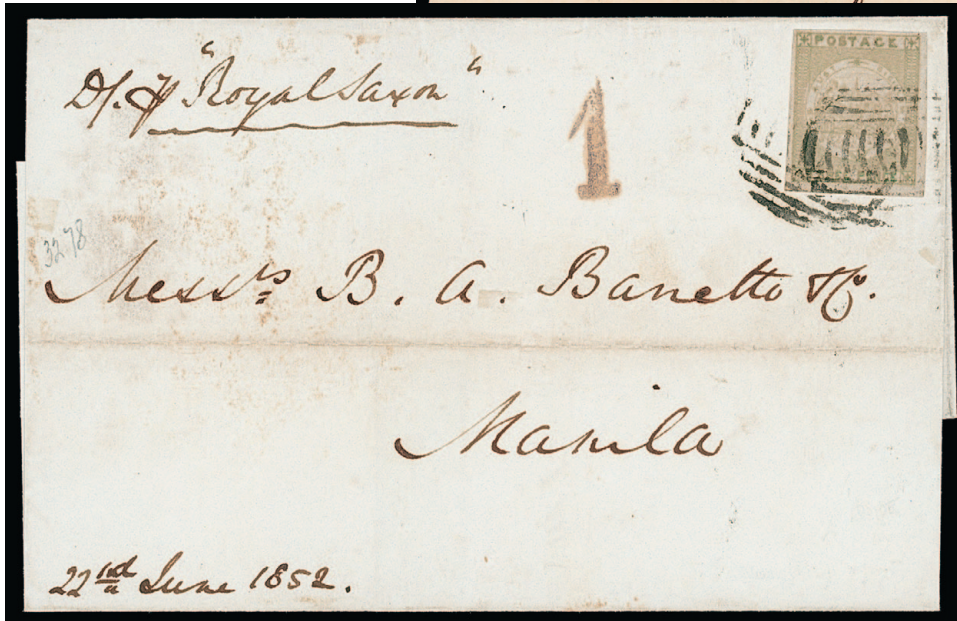 D/. ⅌ "Royal Saxon"
POSTAGE
1
3278
Messrs B. A. Banetto & Co.
Manila
22nd June 1852.